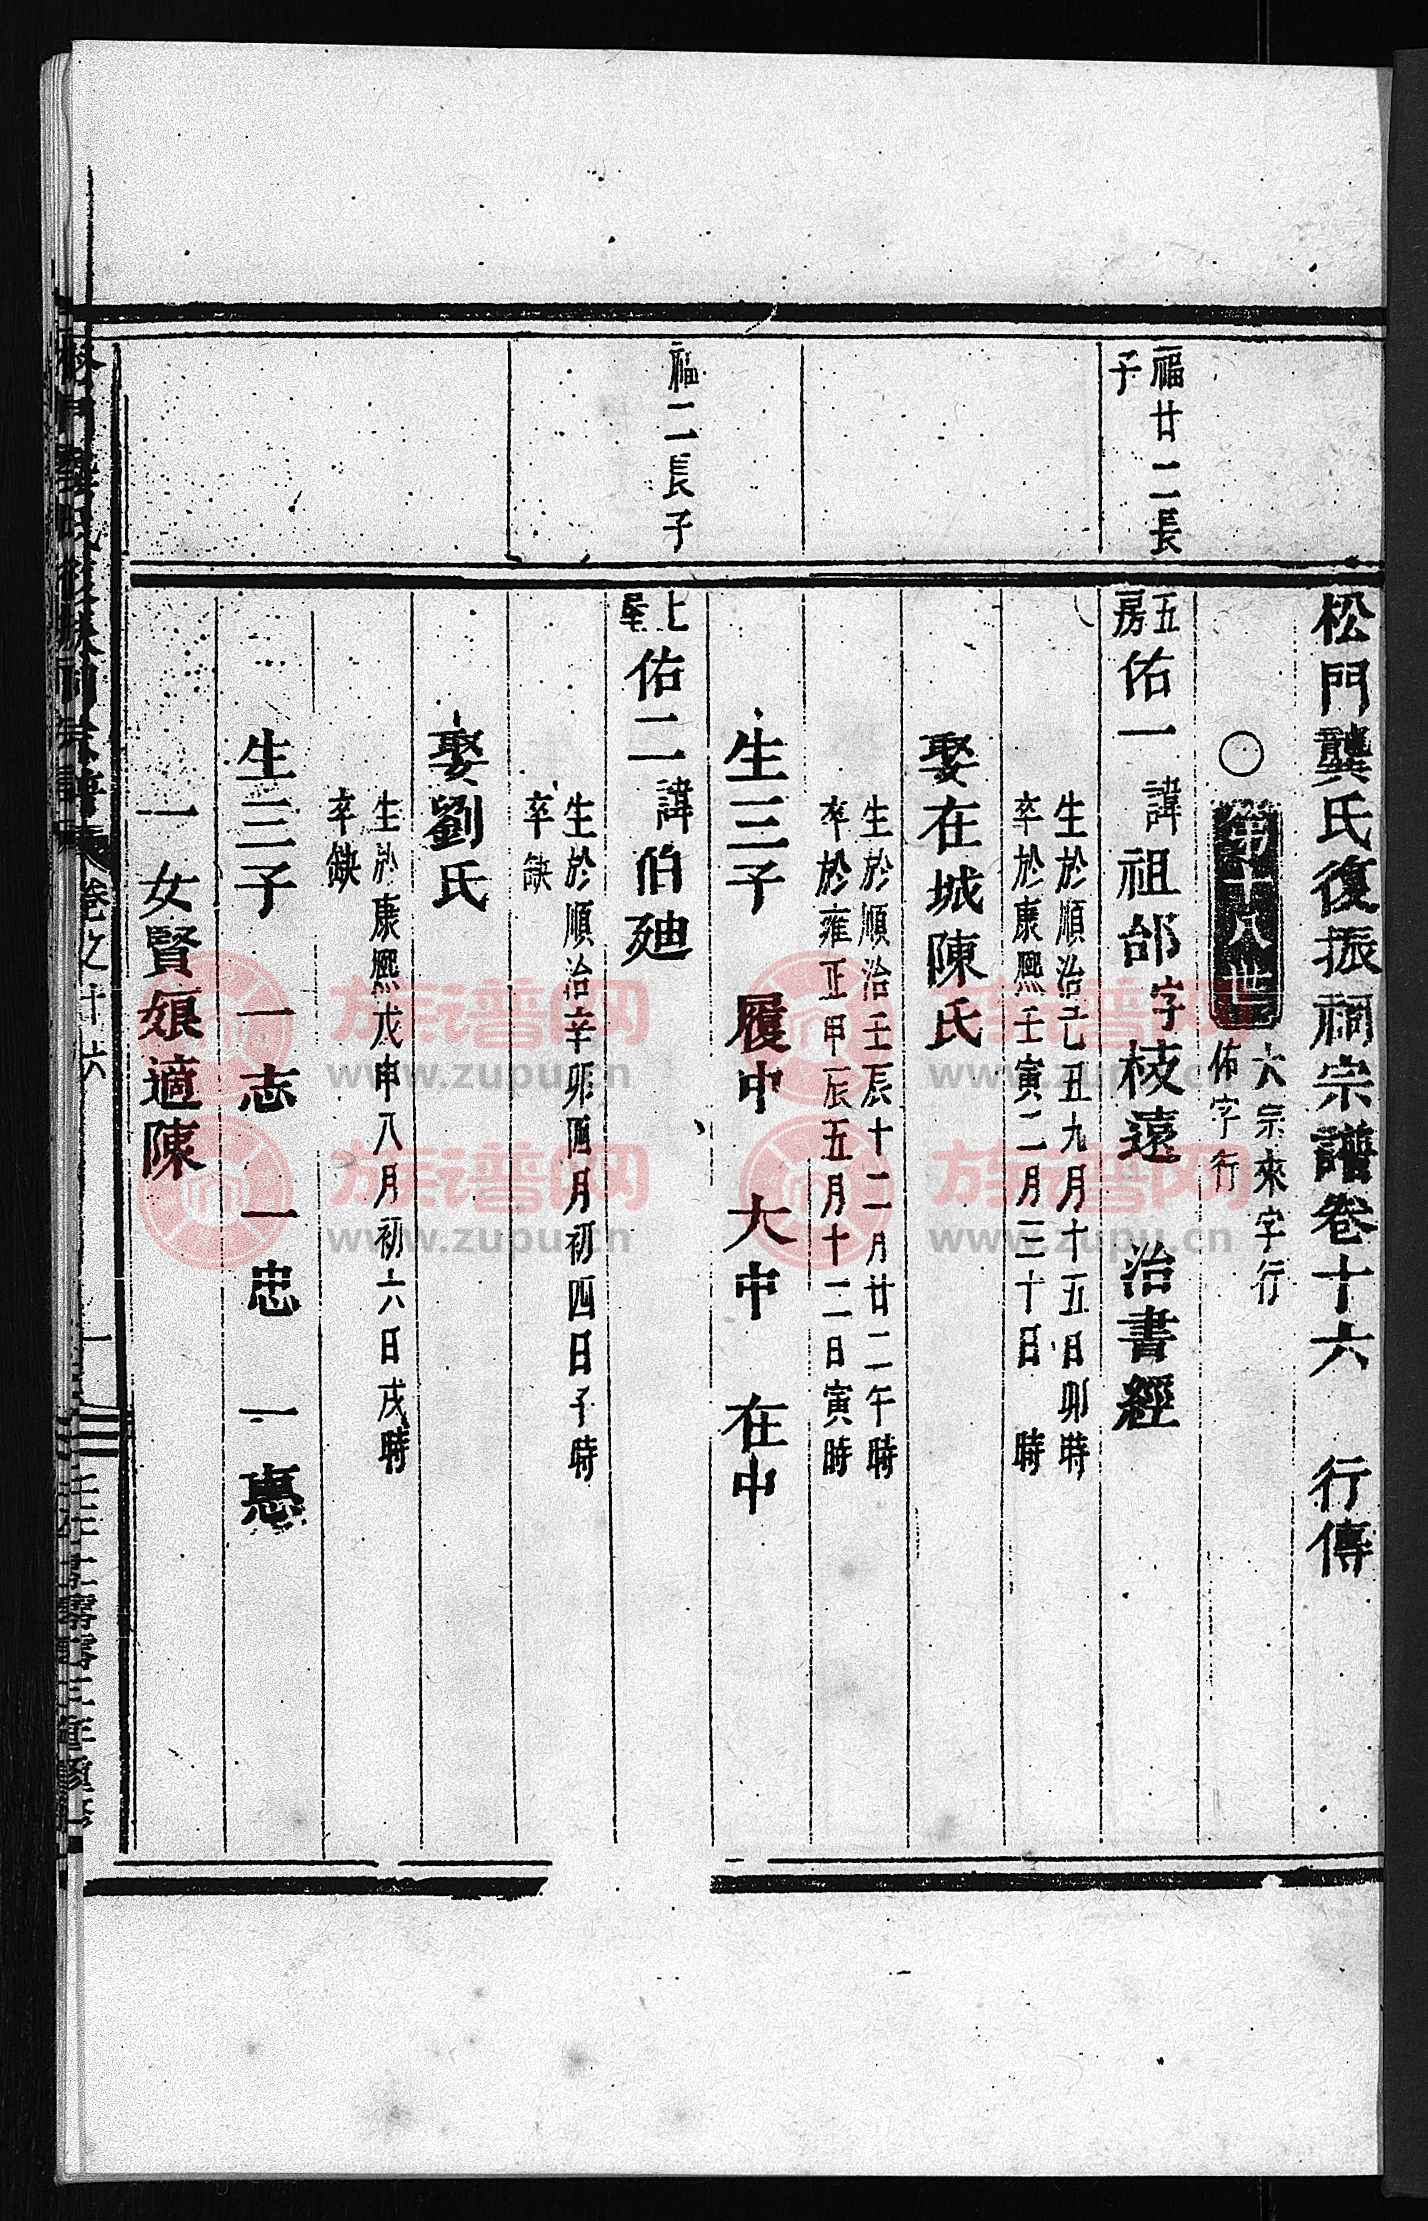 松門龔氏復振祠宗譜卷十六 行傳
○第十八世
大宗來字行
佑字行
福廿二長
子
五房佑一諱祖邰字枝遠 治書經
生於順治己丑九月十五日卯時
卒於康熙壬寅二月三十日 時
娶在城陳氏
生於順治壬辰十二月廿二午時
卒於雍正甲辰五月十二日寅時
生三子 履中 大中 在中
福二長子
上屋佑二諱伯廸
生於順治辛卯四月初四日子時
卒缺
娶劉氏
生於康熙戊申八月初六日戌時
卒缺
生三子 一志 一忠 一惪
一女賢娘適陳
松門龔氏復振祠宗譜 卷之十六
一
族谱网
www.zupu.cn
族谱网
www.zupu.cn
族谱网
www.zupu.cn
族谱网
www.zupu.cn